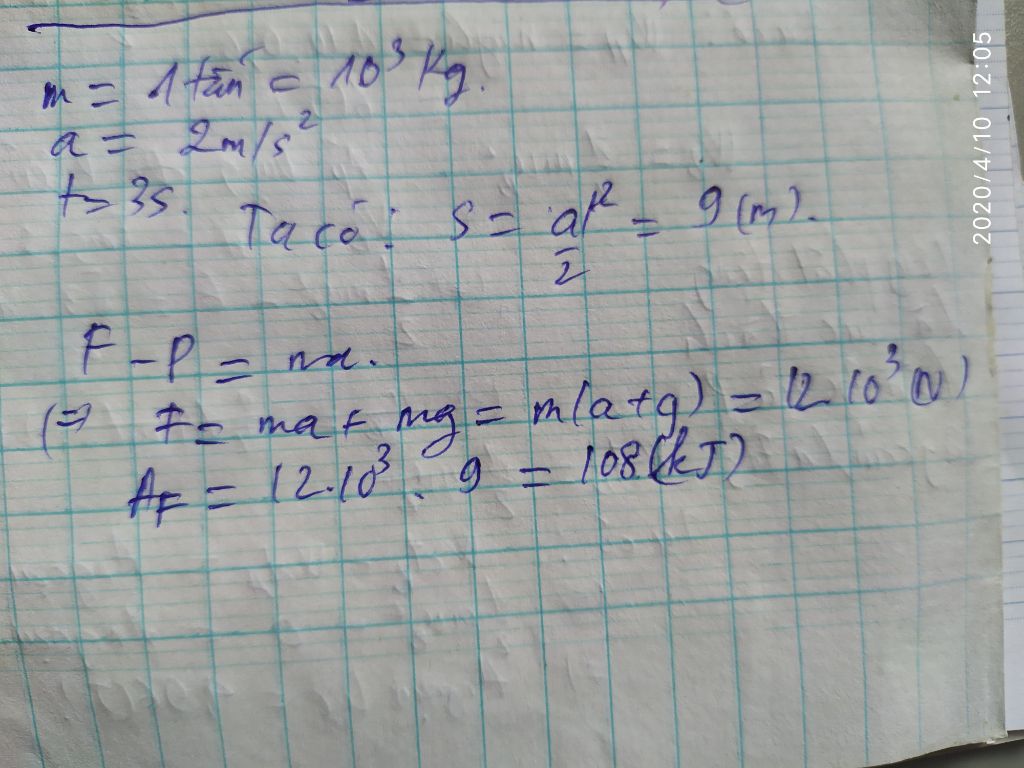 m = 1 tấn = 10³ Kg.
a = 2m/s²
t = 3s.
Ta có: S = at²/2 = 9 (m).
F - P = ma.
(=> F = ma + mg = m(a+g) = 12.10³ (N)
A_F = 12.10³ . 9 = 108(kJ)
2020/4/10 12:05